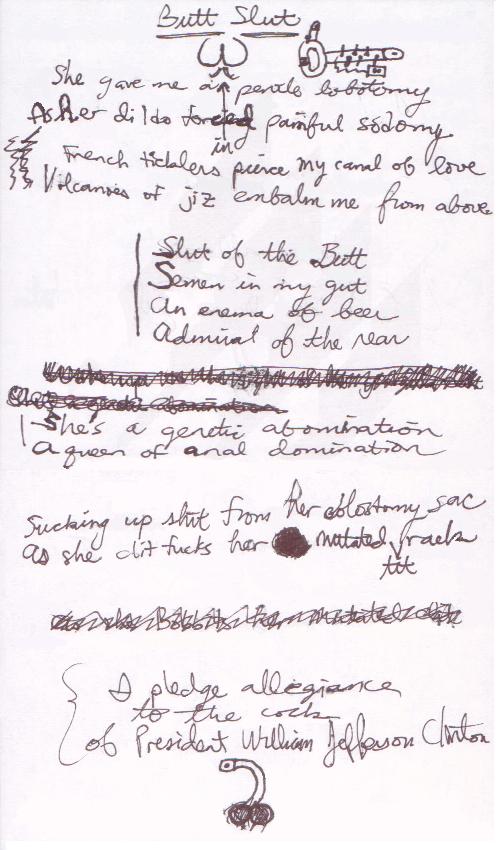 Butt Slut
She gave me a pencil lobotomy
As her dildo forced painful sodomy
in
French ticklers pierce my canal of love
Volcanoes of jiz embalm me from above
Slut of the Butt
Semen in my gut
An enema of beer
Admiral of the rear
She's a genetic abomination
A queen of anal domination
Sucking up shit from her colostomy sac
As she clit fucks her mutated rack
tit
I pledge allegiance
to the cock
of President William Jefferson Clinton